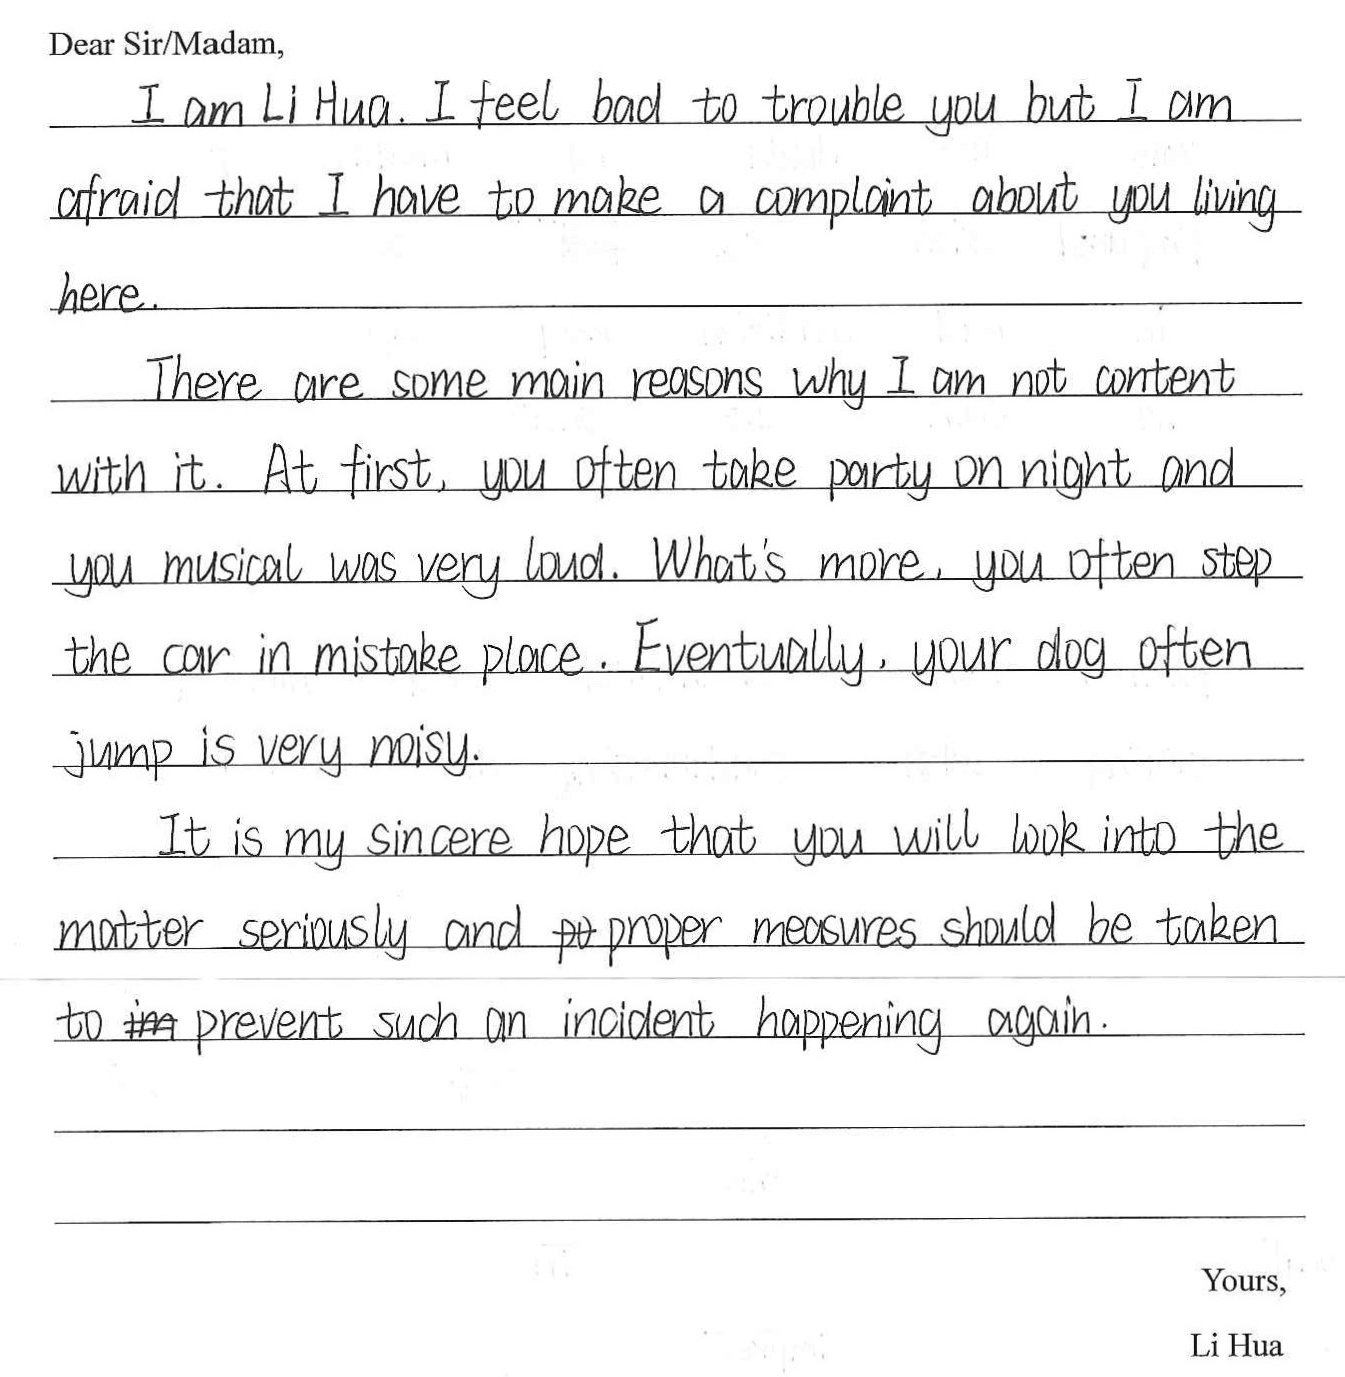 Dear Sir/Madam,
I am Li Hua. I feel bad to trouble you but I am
afraid that I have to make a complaint about you living
here.
There are some main reasons why I am not content
with it. At first, you often take party on night and
you musical was very loud. What's more, you often step
the car in mistake place. Eventually, your dog often
jump is very noisy.
It is my sincere hope that you will look into the
matter seriously and proper measures should be taken
to prevent such an incident happening again.
Yours,
Li Hua